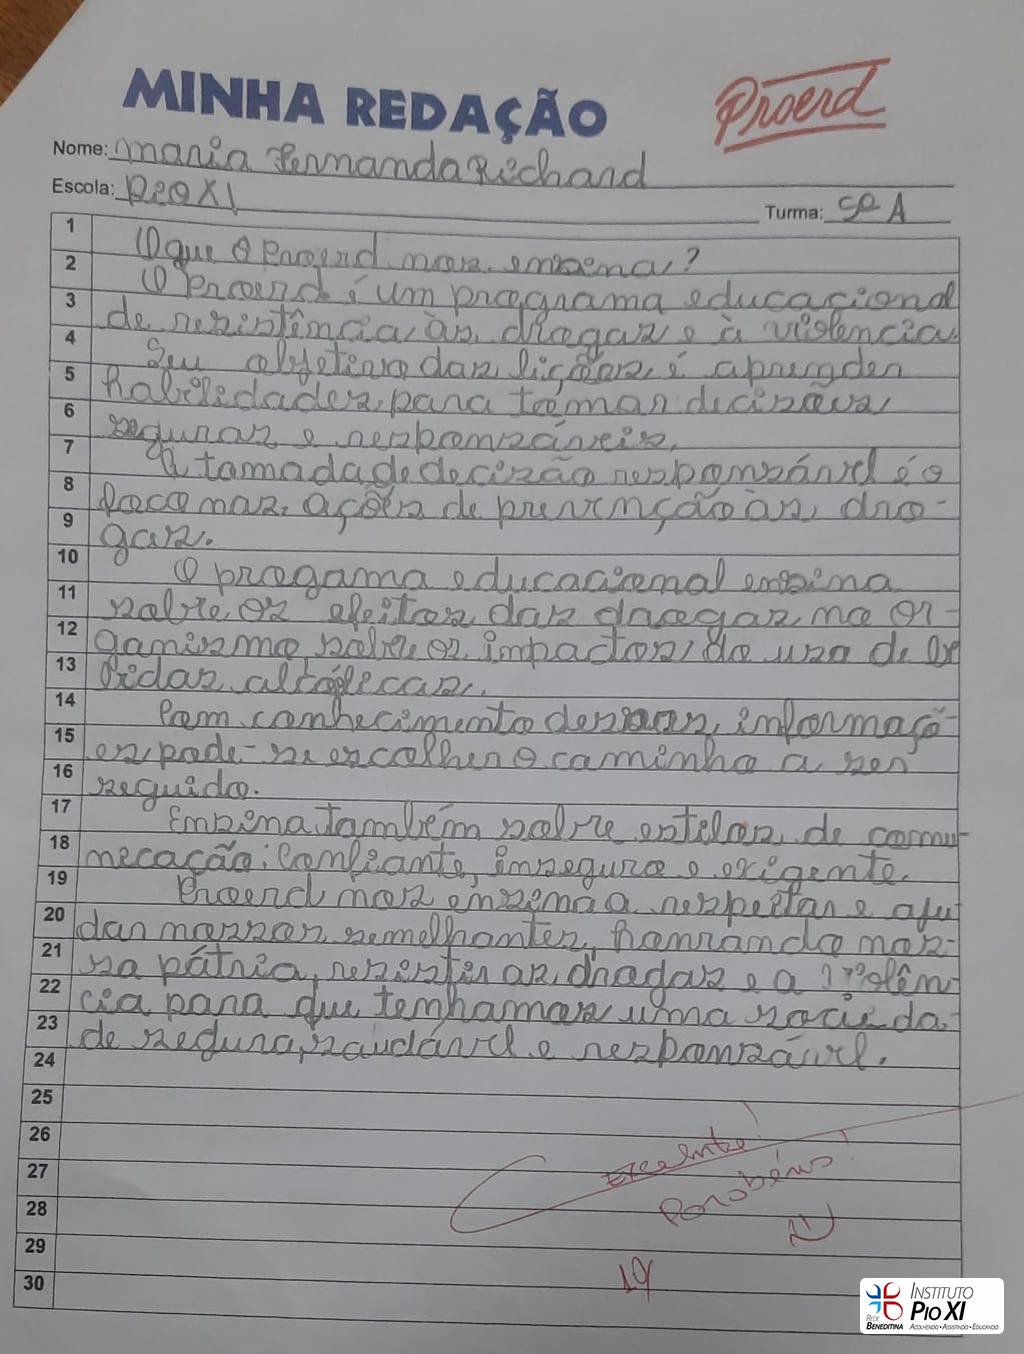 MINHA REDAÇÃO
Proerd
Nome: Maria Fernanda Richard
Escola: Pio XI
Turma: 5º A
1 O que o Proerd nos ensina?
2 O Proerd é um programa educacional
3 de resistência às drogas e à violência.
4 Seu objetivo das lições é aprender
5 habilidades para tomar decisões
6 seguras e responsáveis.
7 A tomada de decisão responsável é o
8 foco nas ações de prevenção às dro-
9 gas.
10 O progama educacional ensina
11 sobre os efeitos das drogas no or-
12 ganismo sobre os impactos do uso de be
13 bidas alcóolicas.
14 Com conhecimento dessas informaçõ-
15 es pode-se escolher o caminho a ser
16 seguido.
17 Ensina também sobre estilos de comu-
18 nicação: Confiante, inseguro e exigente.
19 Proerd nos ensina a respeitar e aju
20 dar nossos semelhantes, honrando nos-
21 sa pátria, resistir as drogas e a violên
22 cia para que tenhamos uma socieda-
23 de segura, saudável e responsável.
24
25
26
27
28
29
30
Excelente!
Parabéns!
10
REDE BENEDITINA
INSTITUTO
PIO XI
ACOLHENDO • ASSISTINDO • EDUCANDO